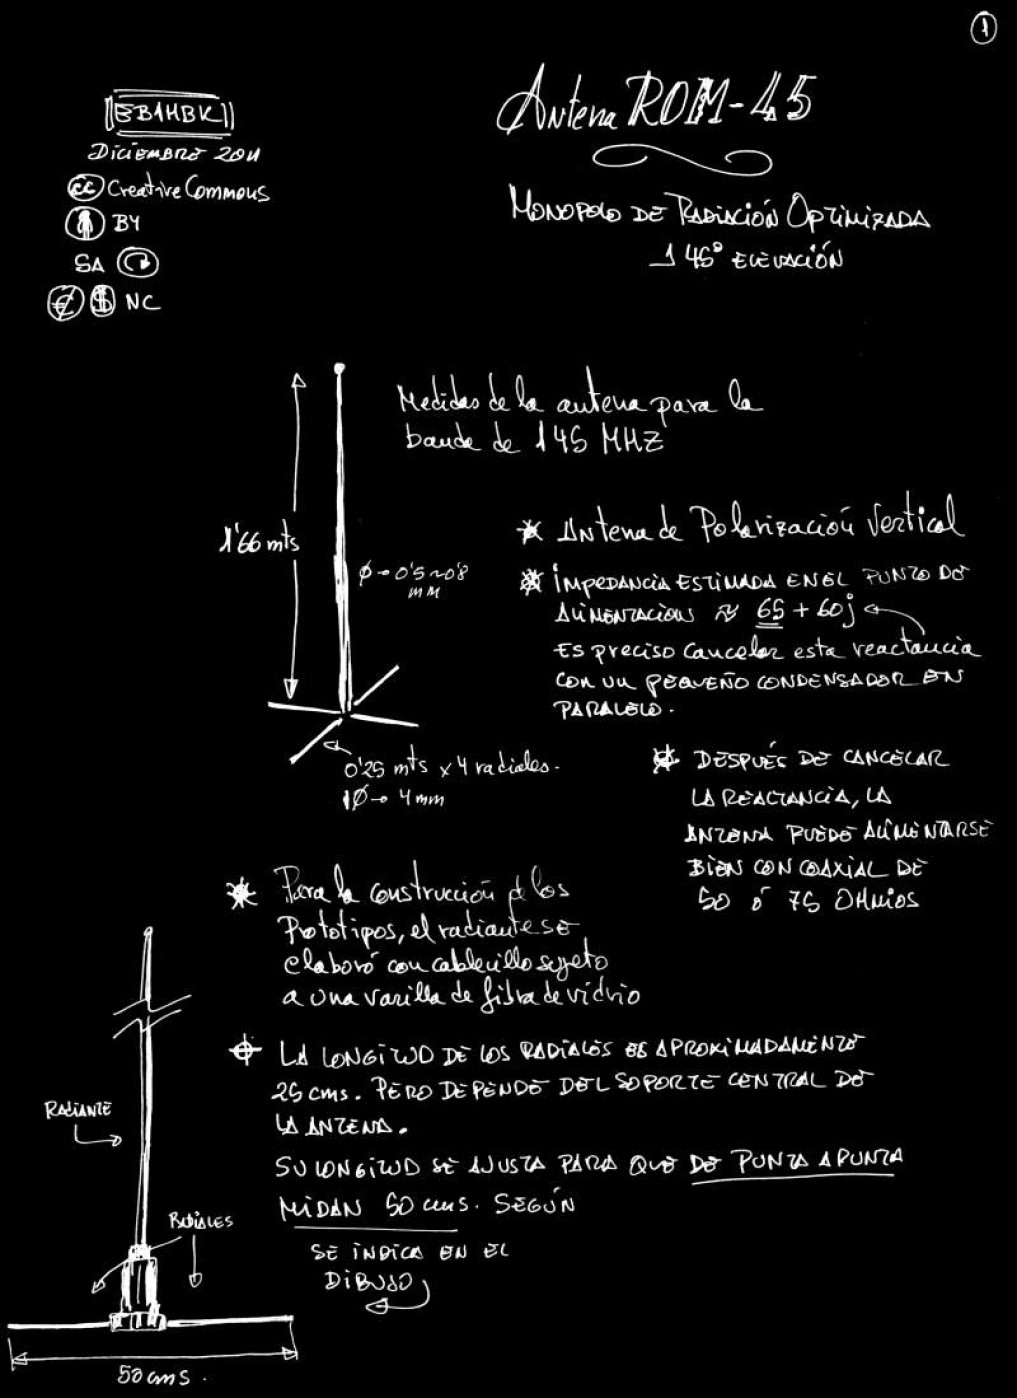 1
EB1HBK
Diciembre 2011
cc Creative Commons
BY
SA
€ $ NC
Antena ROM-45
MONOPOLO DE RADIACIÓN OPTIMIZADA
A 45º ELEVACIÓN
Medidas de la antena para la
banda de 145 MHZ
1'66 mts
Ø→0'5~0'8
mm
* Antena de Polarización Vertical
* IMPEDANCIA ESTIMADA EN EL PUNTO DE
ALIMENTACION ≈ 65 + 60j
Es preciso cancelar esta reactancia
CON UN PEQUEÑO CONDENSADOR EN
PARALELO.
0'25 mts x 4 radiales.
1Ø→ 4mm
* DESPUÉS DE CANCELAR
LA REACTANCIA, LA
ANTENA PUEDE ALIMENTARSE
BIEN CON COAXIAL DE
50 ó 75 OHMIOS
* Para la construcción de los
Prototipos, el radiante se
elaboró con cablecillo sujeto
a una varilla de fibra de vidrio
LA LONGITUD DE LOS RADIALES ES APROXIMADAMENTE
25 cms. PERO DEPENDE DEL SOPORTE CENTRAL DE
LA ANTENA.
SU LONGITUD SE AJUSTA PARA QUE DE PUNTA A PUNTA
MIDAN 50 cms. SEGÚN
SE INDICA EN EL
DIBUJO
RADIANTE
RADIALES
50 cms.